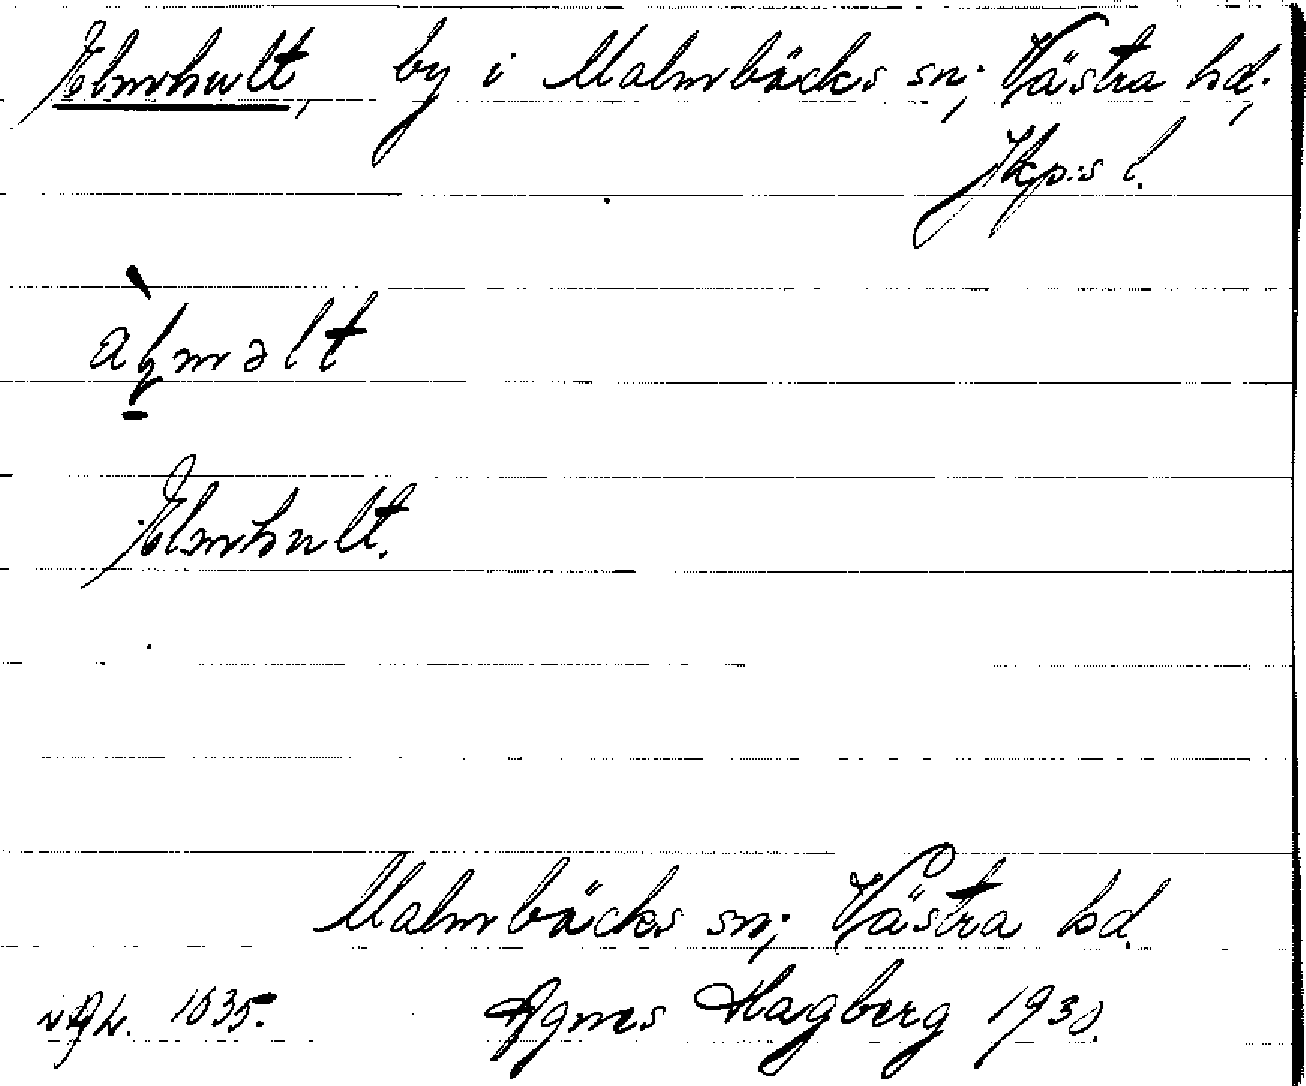 Elmhult, by i Malmbäcks sn; Västra hd,
Jkp:s l.
Elmhult.
Malmbäcks sn; Västra hd.
1035. Agnes Hagberg 1930.